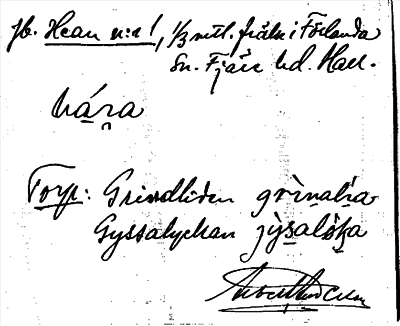 jb. Hean n:r 1, 1/3 mtl. frälse i Förlanda
Sn. Fjäre hd. Hall.
hára
Torp: Grindliden grìnalia
Gyssalyckan jỳsaløka